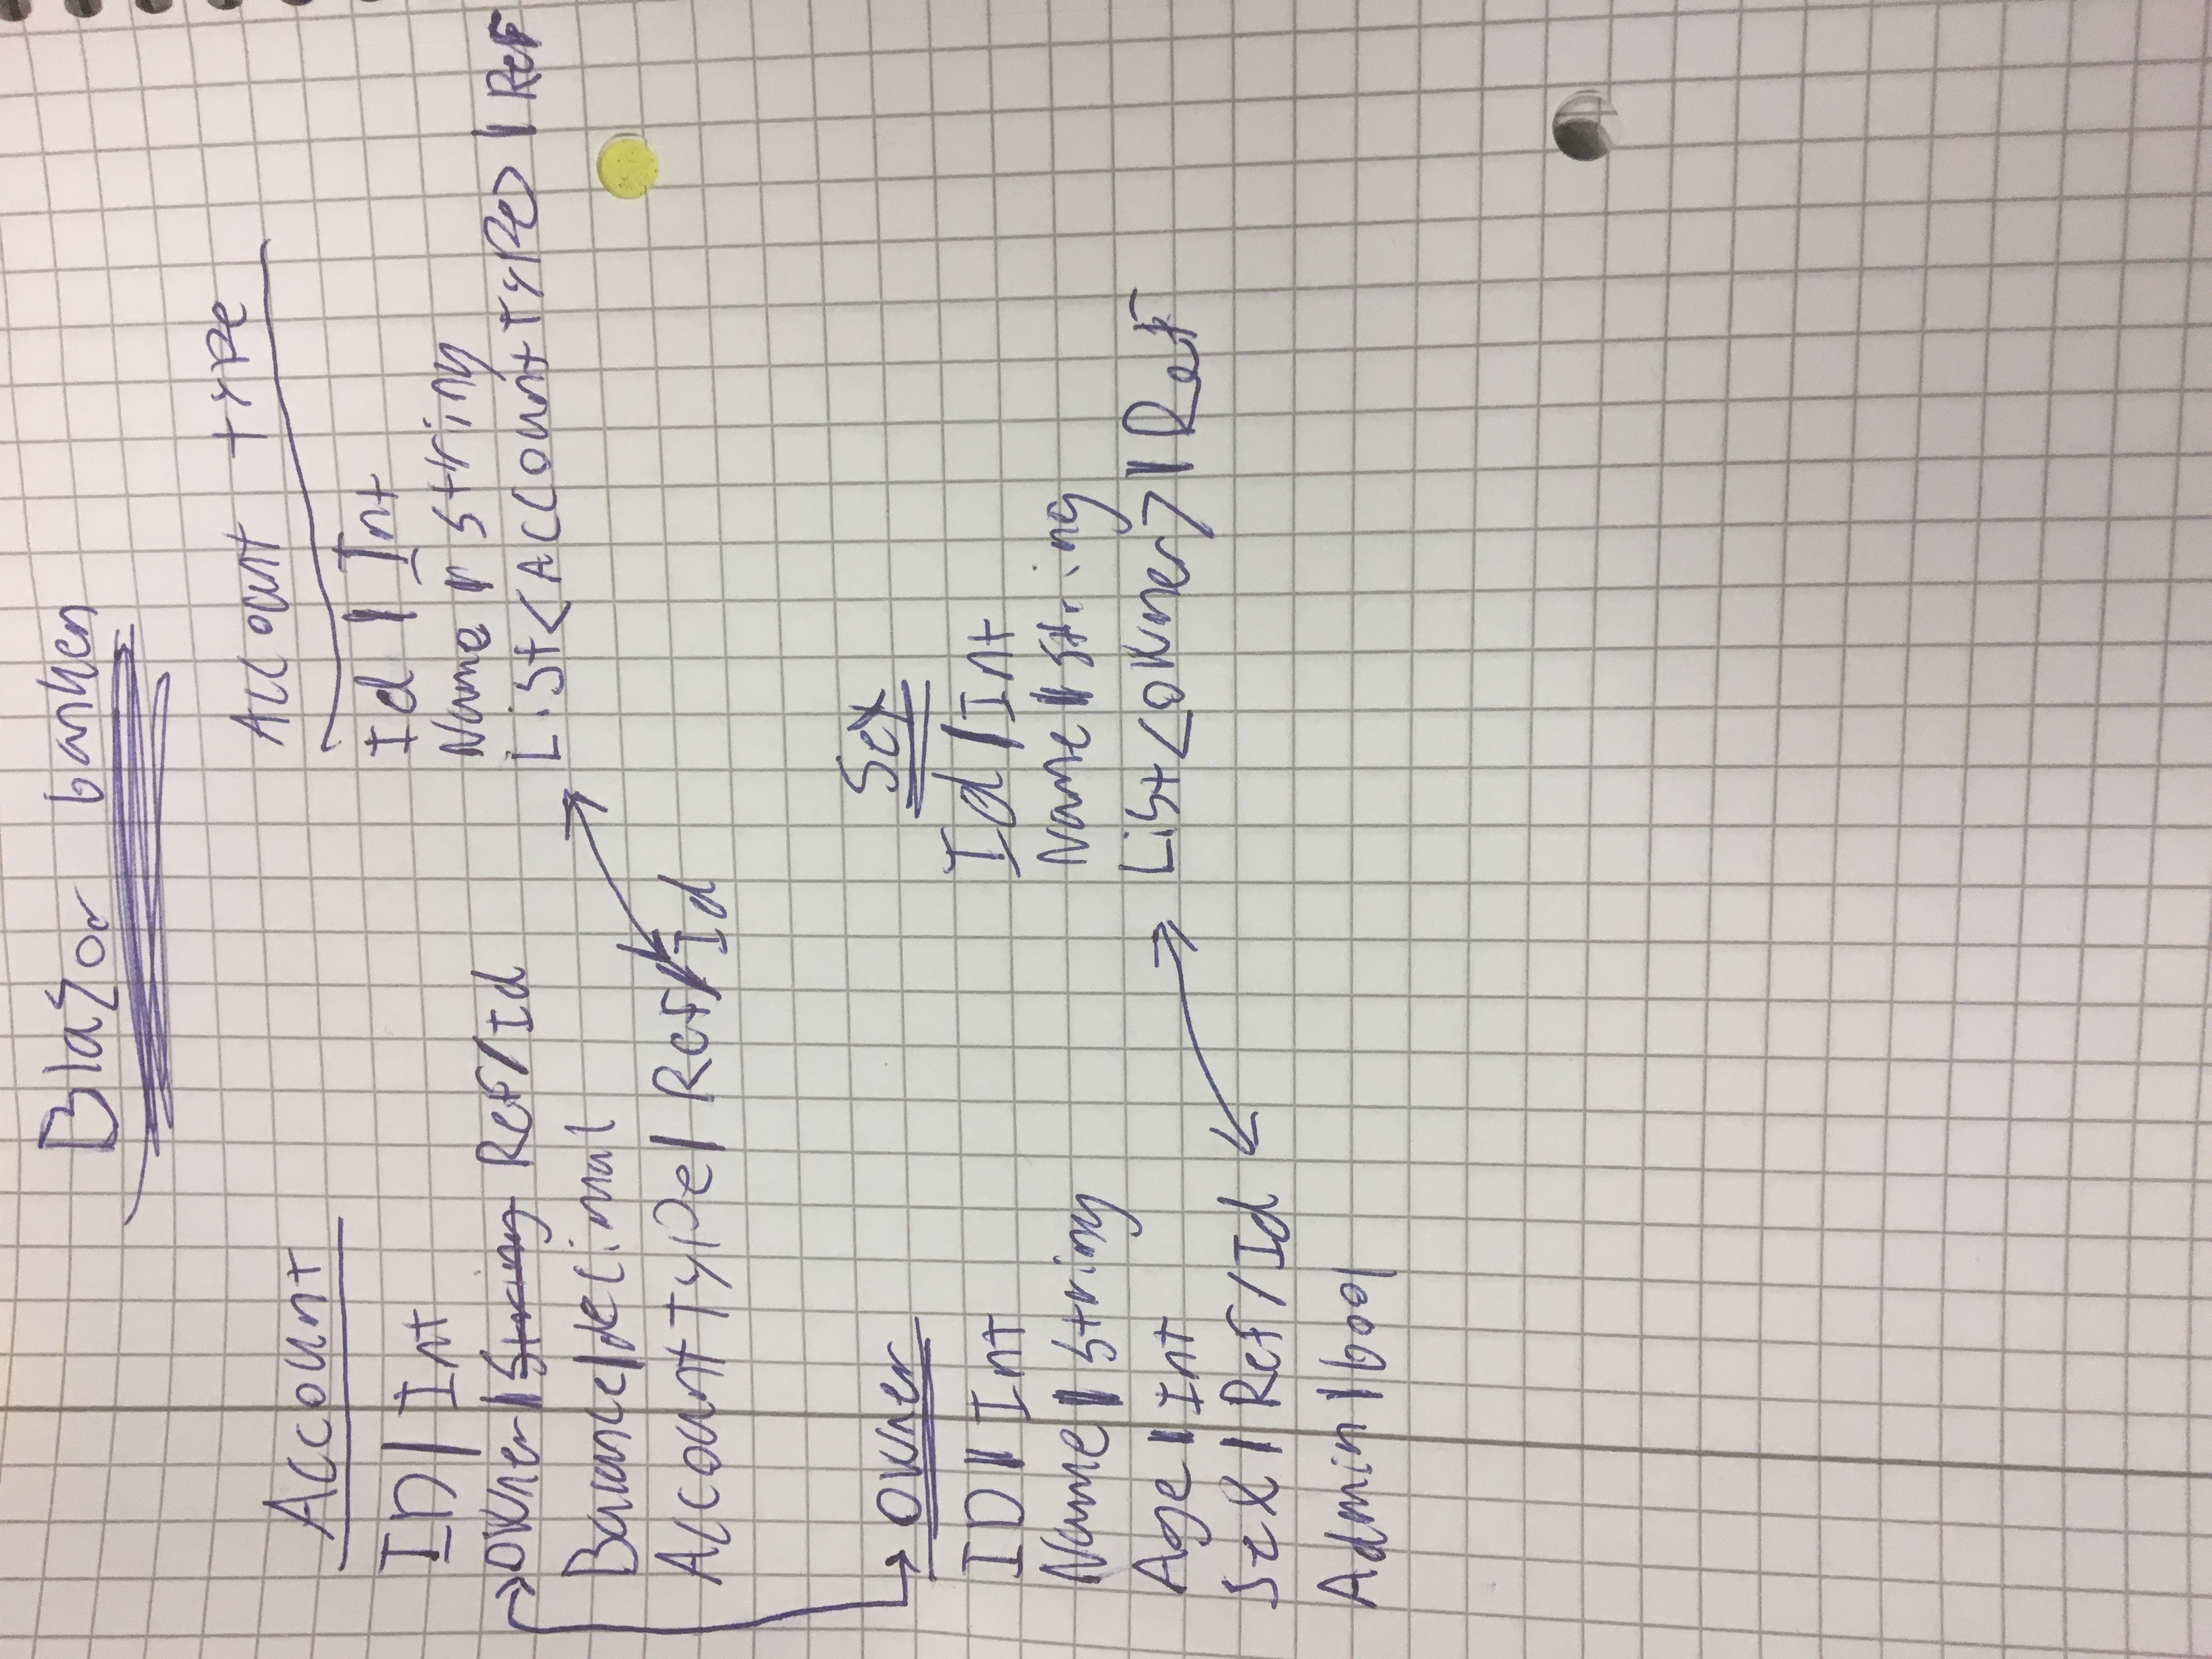 Blazor banken
Account
ID | Int
Owner | String Ref/Id
Balance | decimal
Account Type | Ref/Id
Account type
Id | Int
Name | string
List<Account type> | Ref
Owner
ID | Int
Name | string
Age | Int
Sex | Ref/Id
Admin | bool
Sex
Id | Int
Name | string
List<Owner> | Ref